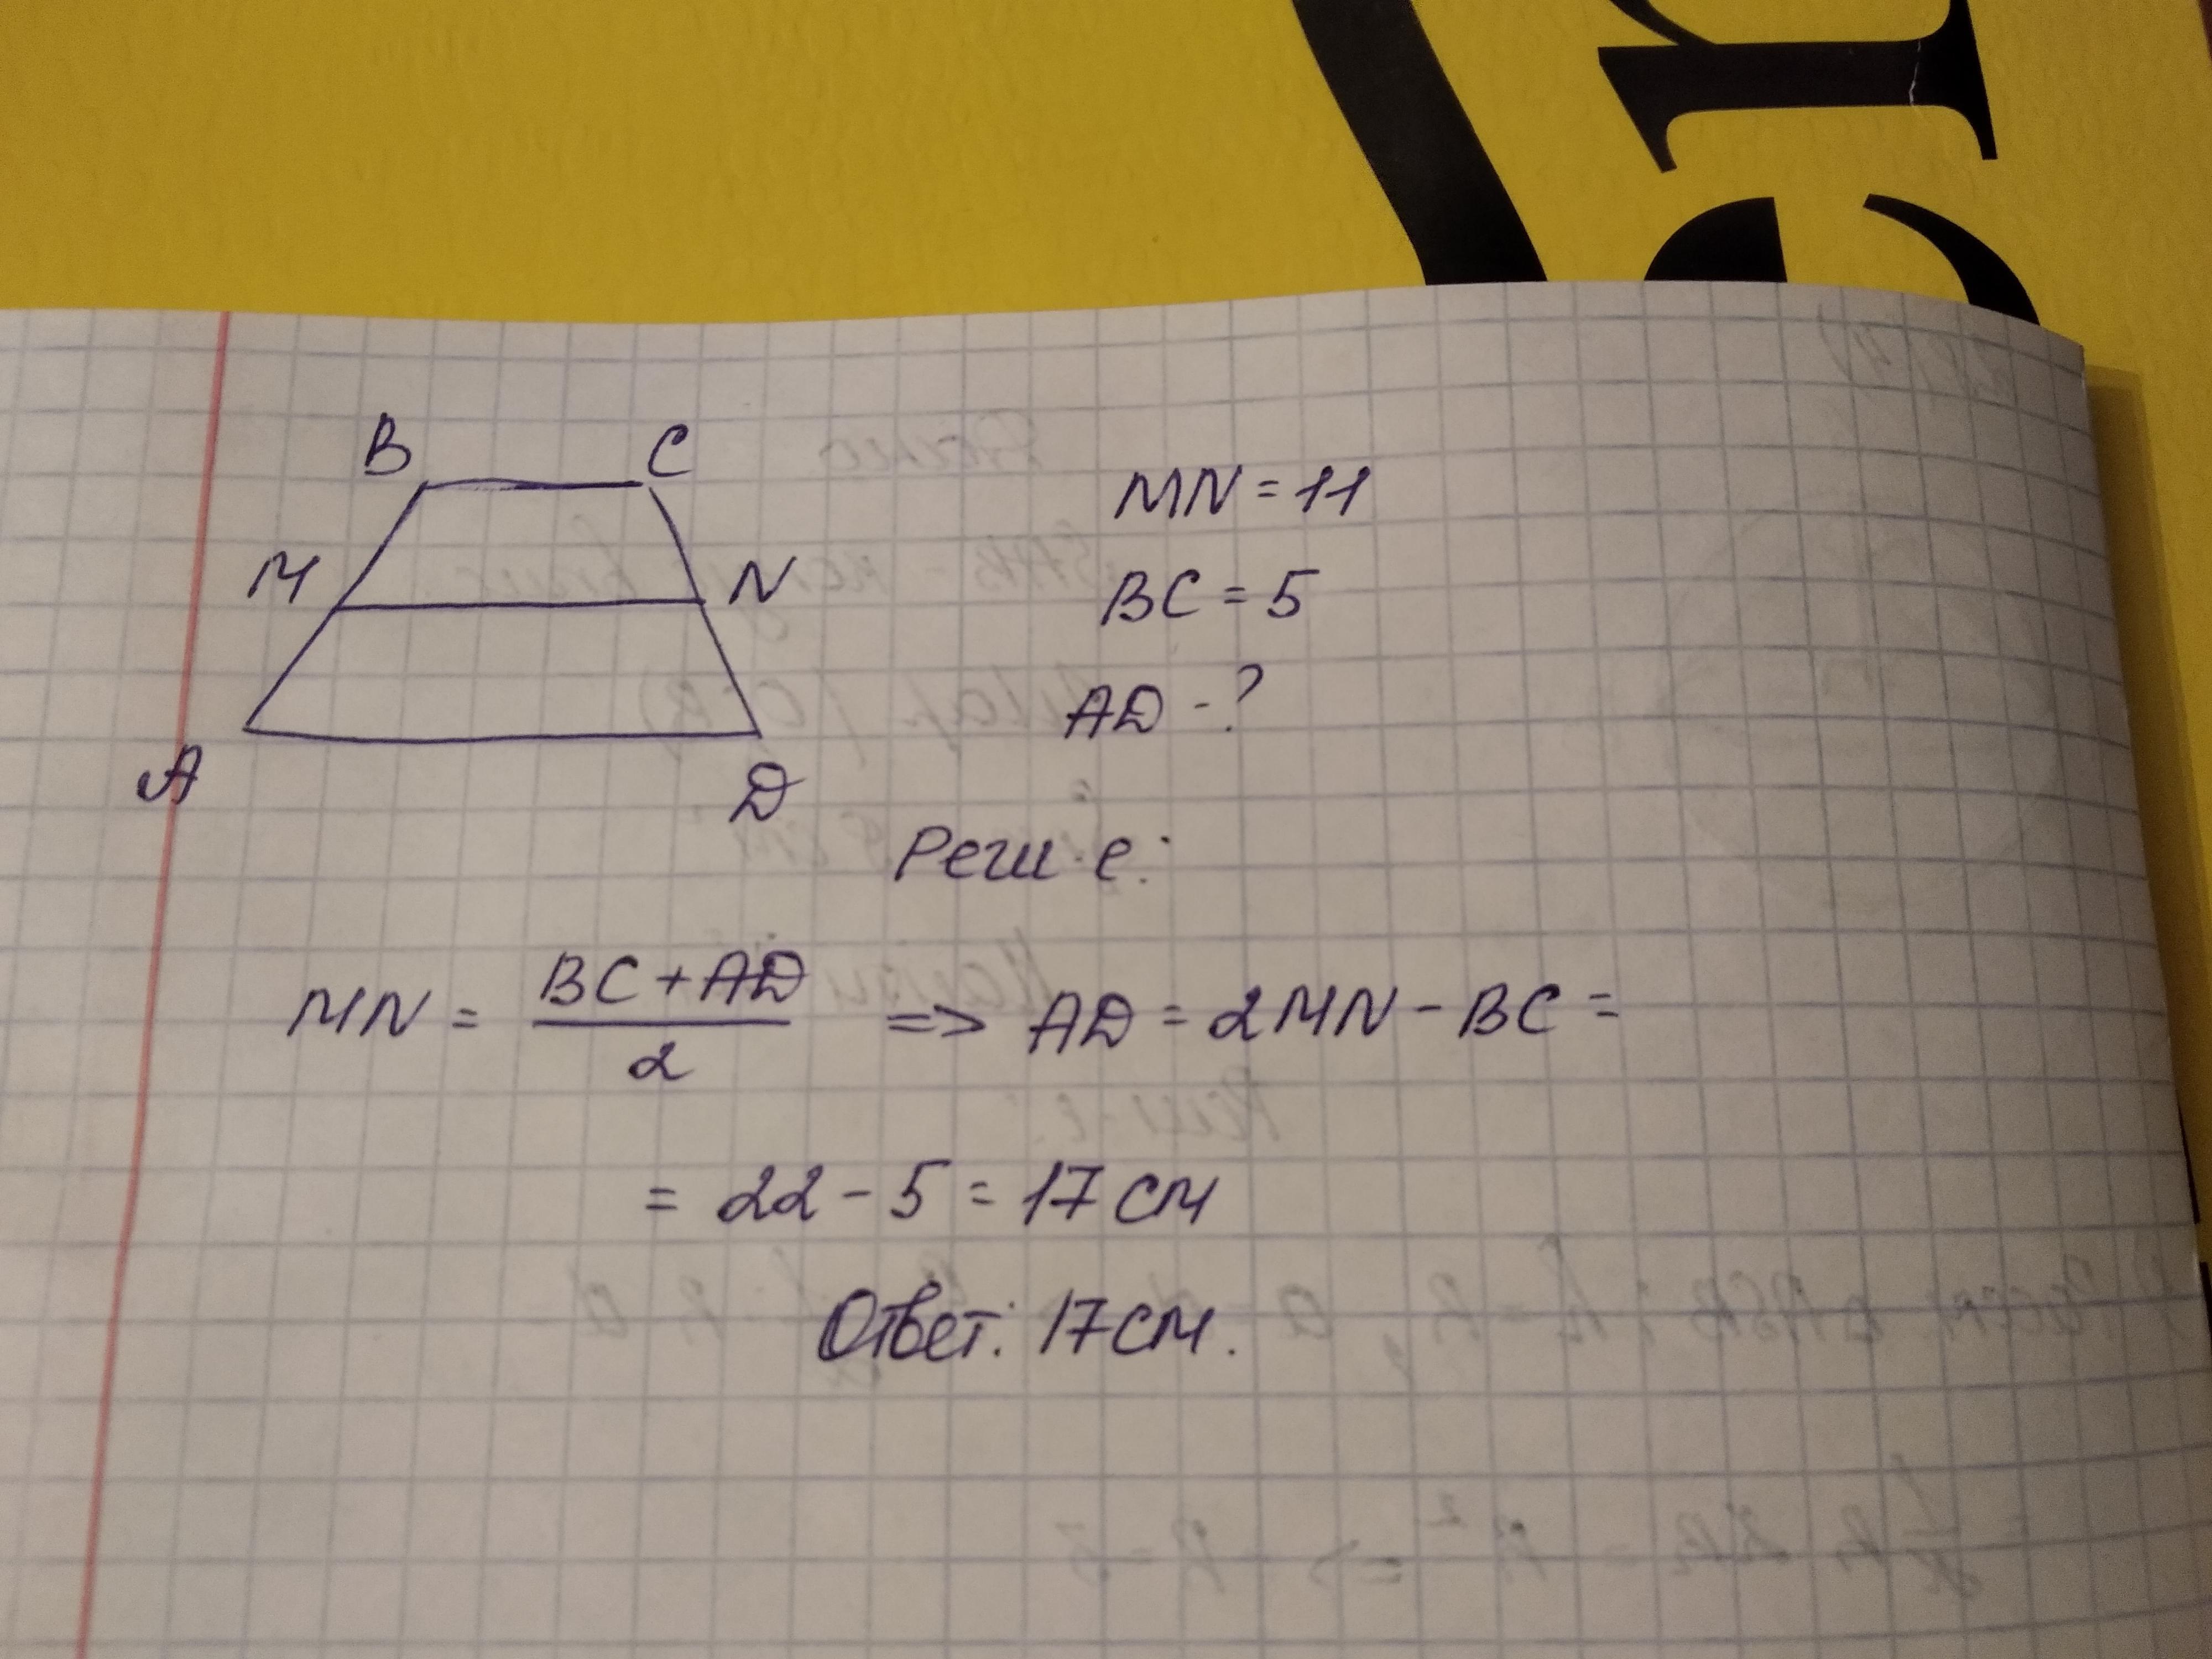 B C
M N
A D
MN = 11
BC = 5
AD - ?
Реш-е:
MN = BC + AD / 2 => AD = 2MN - BC =
= 22 - 5 = 17 см
Ответ: 17 см.